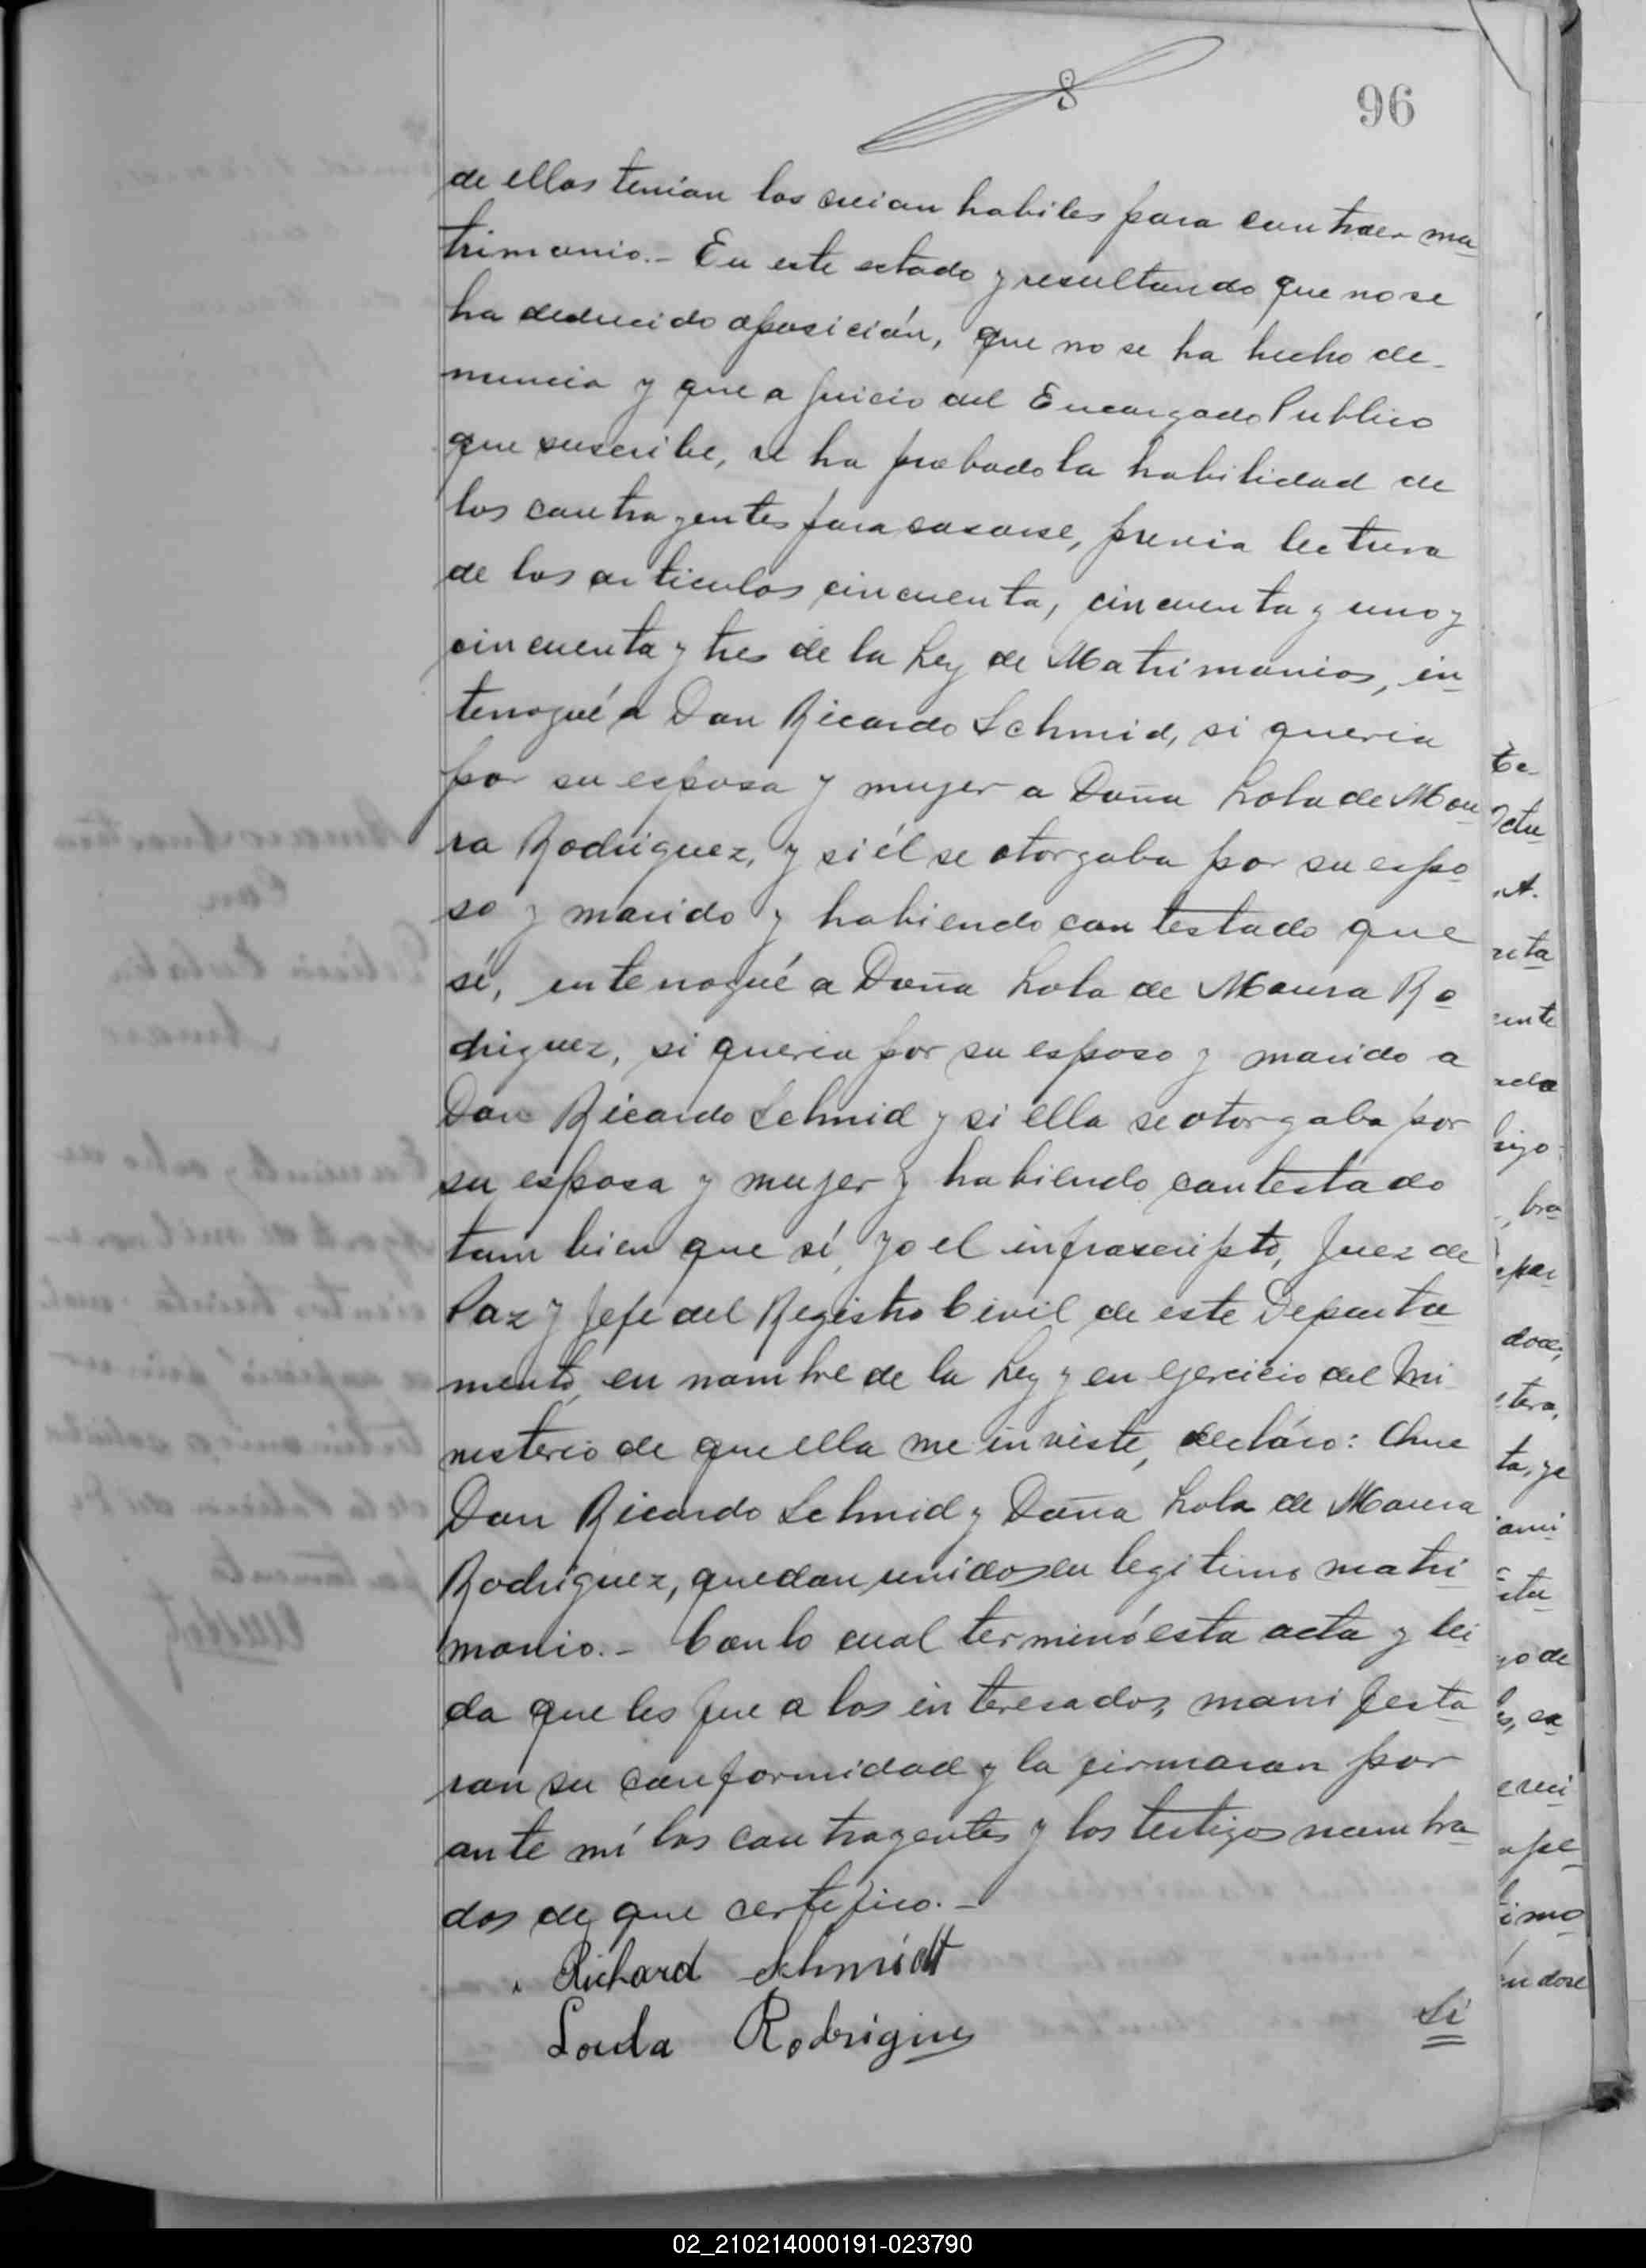 96
de ellos tenían los creian habiles para contraer ma
trimonio.- En este estado y resultando que no se
ha deducido oposición, que no se ha hecho de-
nuncia y que a juicio del Encargado Publico
que suscribe, se ha probado la habilidad de
los contrayentes para casarse, previa lectura
de los articulos cincuenta, cincuenta y uno y
cincuenta y tres de la Ley de Matrimonios, in
terrogué a Don Ricardo Schmid, si queria
por su esposa y mujer a Doña Lola de Mou
ra Rodriguez, y si él se otorgaba por su espo
so y marido y habiendo contestado que
sí, interrogué a Doña Lola de Moura Ro
driguez, si queria por su esposo y marido a
Don Ricardo Schmid y si ella se otorgaba por
su esposa y mujer y habiendo contestado
tambien que sí, yo el infrascripto, Juez de
Paz y Jefe del Registro Civil de este Departa
mento, en nombre de la Ley y en ejercicio del Mi
nisterio de que ella me inviste, decláro: Que
Don Ricardo Schmid y Doña Lola de Moura
Rodriguez, quedan unidos en legitimo matri
monio.- Con lo cual terminó esta acta y lei
da que les fue a los interesados, manifesta
ron su conformidad y la firmaron por
ante mí los contrayentes y los testigos nombra
dos de que certifico.-
Richard Schmidt
Loula Rodrigues
Si
02_210214000191-023790